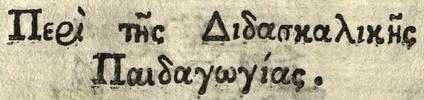 Περὶ τῆς Διδασκαλικῆς
Παιδαγωγίας.